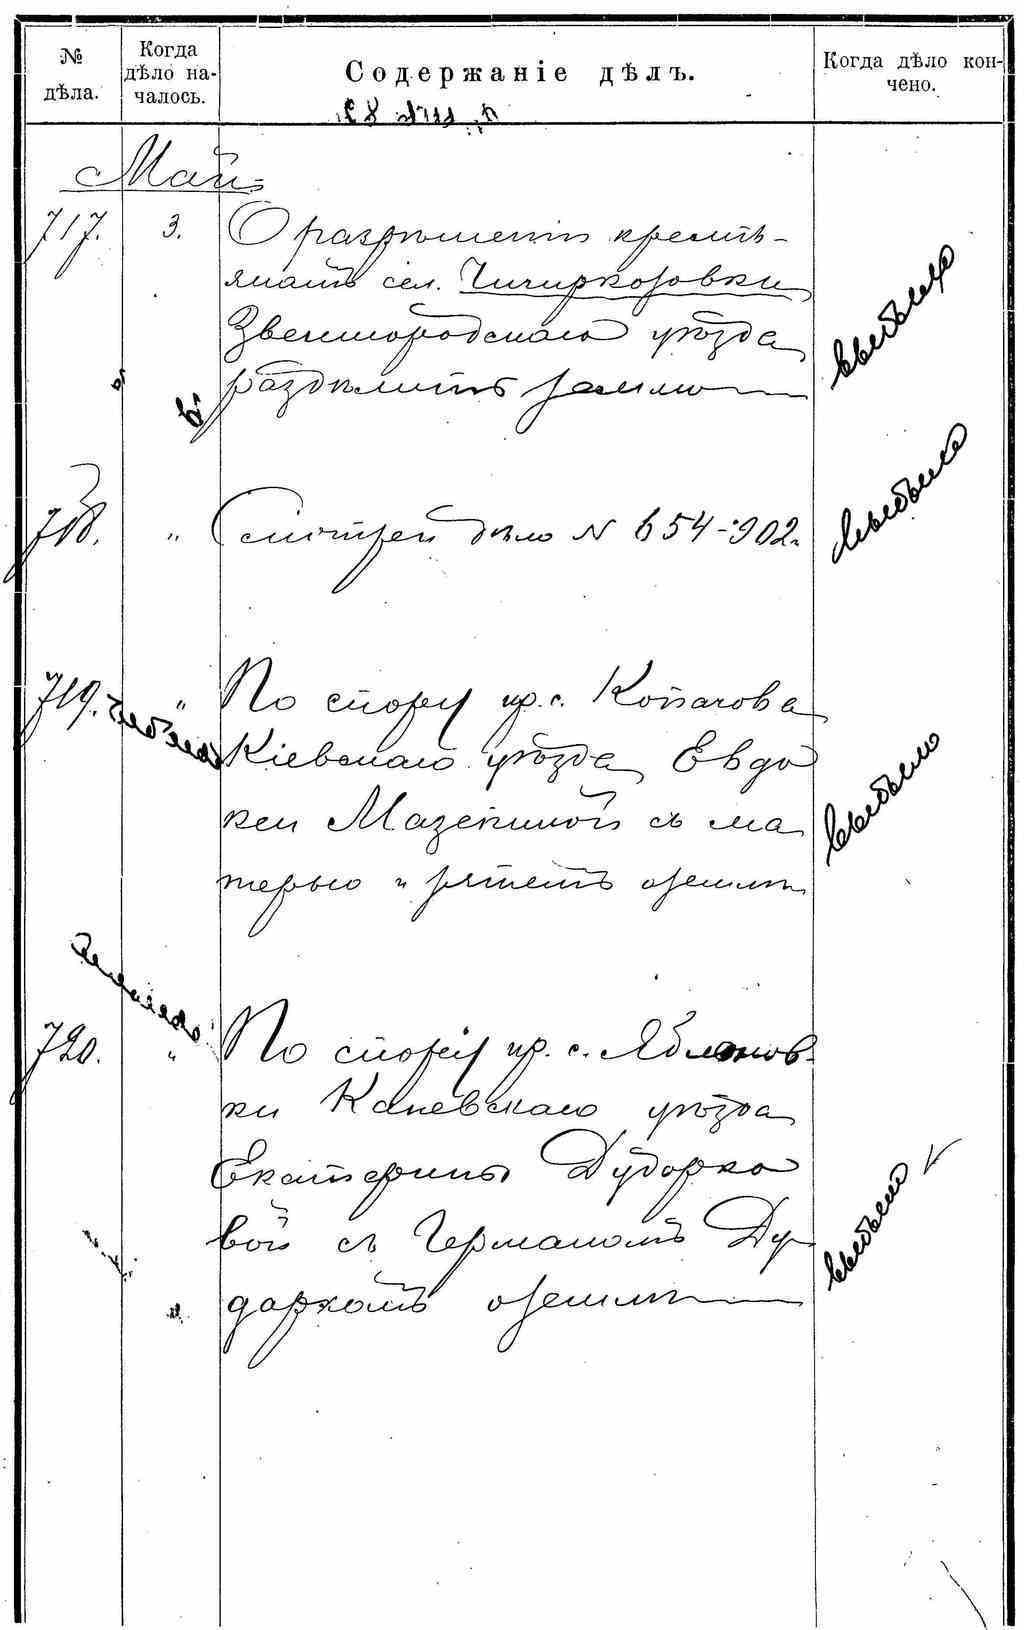 № дѣла.
Когда дѣло началось.
Содержаніе дѣлъ.
Когда дѣло кончено.
Май
717. 3. О разрѣшеніи кресть-
янамъ сел. Чичиркозовки
Звенигородскаго уѣзда
раздѣлить землю
выбыло
718. " Смотри дѣло N 654-902.
выбыло
719. " По спору кр. с. Копачова
Кіевскаго уѣзда Евдо
кіи Мазепиной съ ма
терью и зятемъ о земли
выбыло
720. " По спору кр. с. Яблонов-
ки Каневскаго уѣзда
Екатерины Дударко
вой съ Германомъ Ду
даркомъ о земли
выбыло